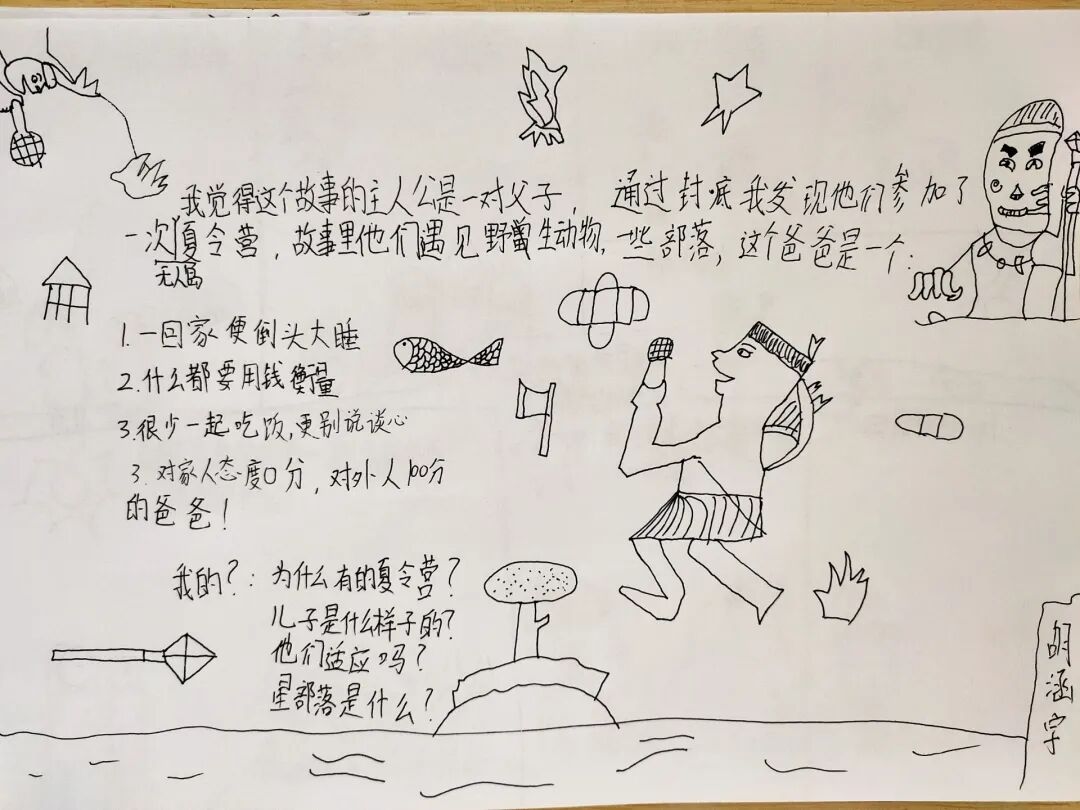 我觉得这个故事的主人公是一对父子，通过封底我发现他们参加了
一次夏令营，故事里他们遇见野兽生动物，一些部落，这个爸爸是一个：
无人岛
1.一回家便倒头大睡
2.什么都要用钱衡量
3.很少一起吃饭，更别说谈心
3.对家人态度0分，对外人100分
的爸爸！
我的？：为什么有的夏令营？
儿子是什么样子的？
他们适应吗？
星部落是什么？
胡涵宇